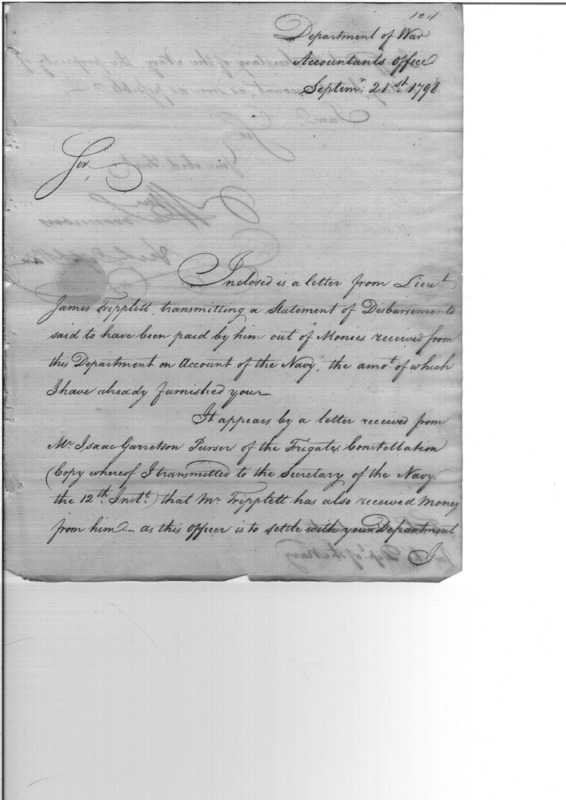 124
Department of War
Accountants Office
Septemr. 21st. 1798
Sir,
Inclosed is a letter from Lieut.
James Tripplett transmitting a Statement of Disbursements
said to have been paid by him out of Monies received from
this Department on Account of the Navy, the amot. of which
I have already furnished you—
It appears by a letter received from
Mr. Isaac Garretson Purser of the Frigate Constellation
(Copy whereof I transmitted to the Secretary of the Navy
the 12th. Inst.) that Mr. Tripplett has also received Money
from him — as this Officer is to settle with your Department
I